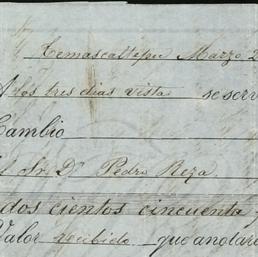 Temascaltepec Marzo 2
A los tres dias vista se serv
Cambio
Sr. Dn. Pedro Reza.
dos cientos cincuenta
Valor recibido que anotaré